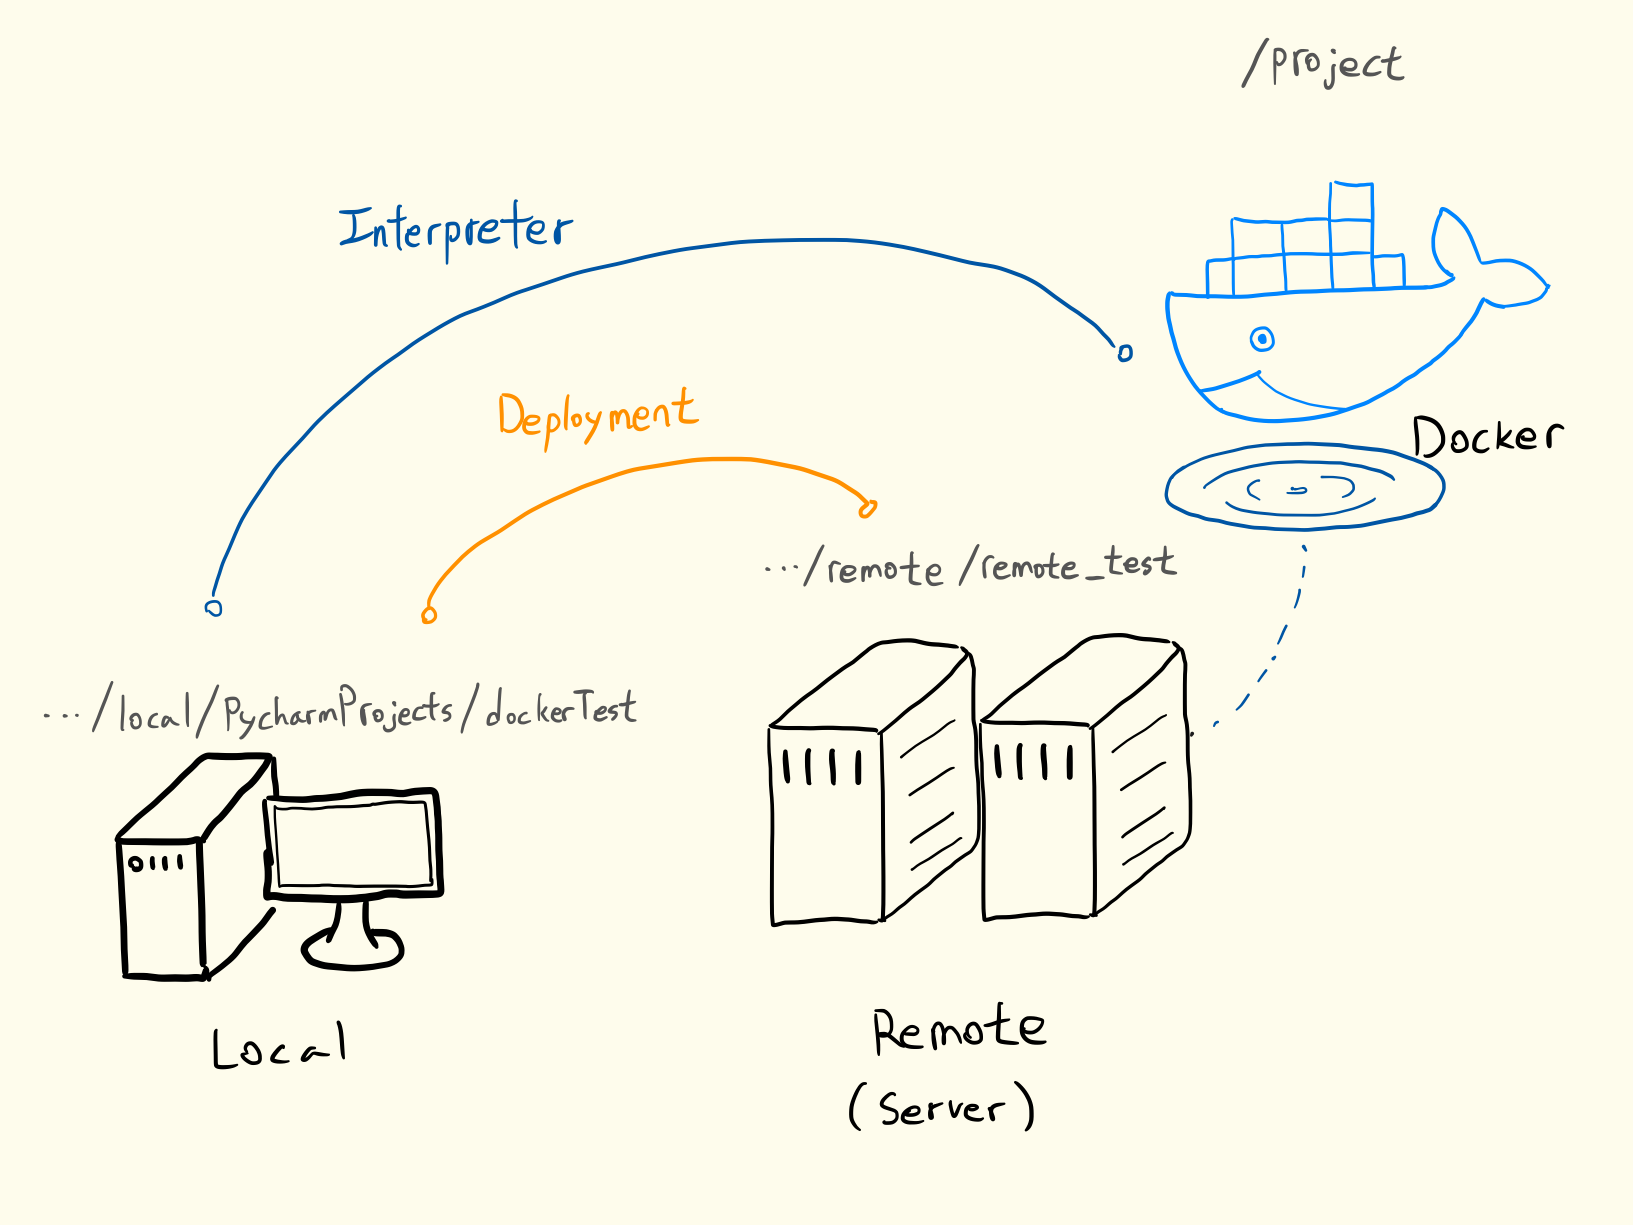 /project
Interpreter
Deployment
Docker
.../remote /remote_test
.../local/PycharmProjects/dockerTest
Local
Remote
(Server)